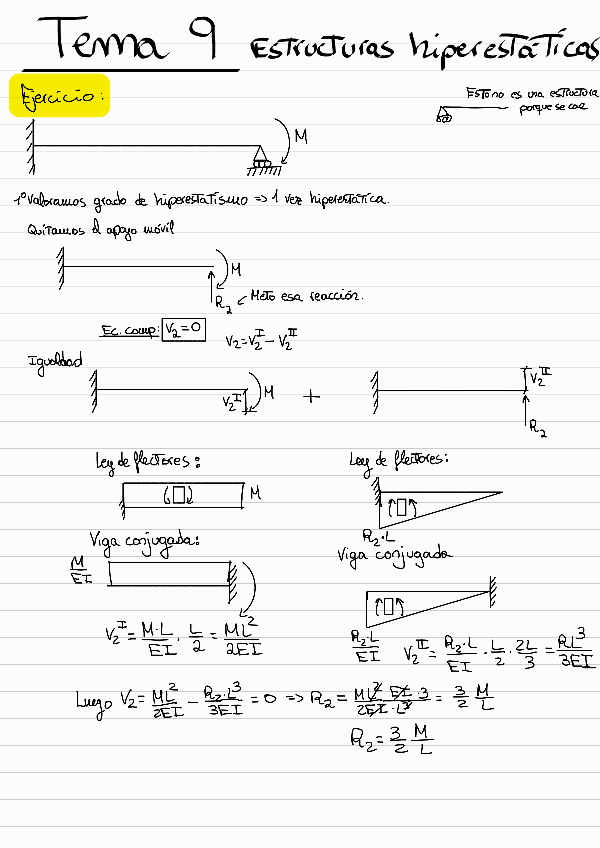 Tema 9 Estructuras hiperestáticas
Ejercicio:
Esto no es una estructura
porque se cae
M
1º Valoramos grado de hiperestatismo => 1 vez hiperestática.
Quitamos el apoyo móvil
M
R₂ ← Meto esa reacción.
Ec. comp: V₂=0
V₂=V₂ᴵ-V₂ᴵᴵ
Igualdad
V₂ᴵ M + V₂ᴵᴵ
R₂
Ley de flectores: Ley de flectores:
M
R₂·L
Viga conjugada: Viga conjugada
M/EI
R₂·L/EI
V₂ᴵ = M·L/EI · L/2 = ML²/2EI
V₂ᴵᴵ = R₂·L/EI · L/2 · 2L/3 = RL³/3EI
Luego V₂ = ML²/2EI - R₂·L³/3EI = 0 => R₂ = ML² EI·3/2EI·L³ = 3/2 M/L
R₂ = 3/2 M/L